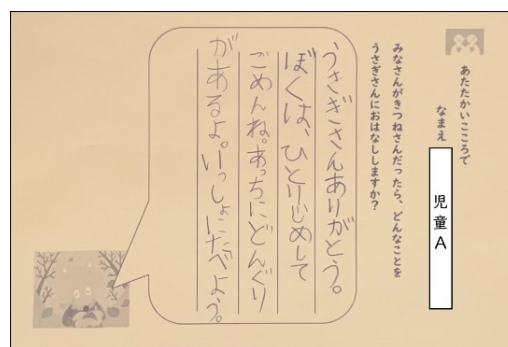 あたたかいこころで
なまえ
児童A
みなさんがきつねさんだったら、どんなことを
うさぎさんにおはなししますか?
うさぎさんありがとう。
ぼくは、ひとりじめして
ごめんね。あっちにどんぐり
があるよ。いっしょにたべよう。